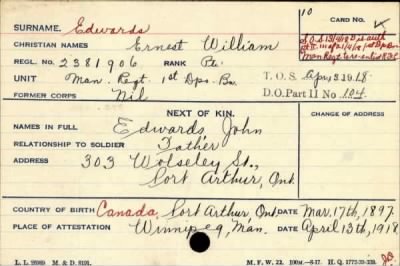 10
CARD NO.
SURNAME. Edwards
CHRISTIAN NAMES Ernest William
REGL. NO. 2381906 RANK Pte.
UNIT Man. Regt. 1st Dps. Bn. T.O.S. Apr. 13 1918
FORMER CORPS Nil D.O. Part II No. 104.
NEXT OF KIN.
CHANGE OF ADDRESS
NAMES IN FULL Edwards, John
RELATIONSHIP TO SOLDIER Father
ADDRESS 303 Wolseley St.,
Port Arthur, Ont.
COUNTRY OF BIRTH Canada, Port Arthur, Ont. DATE Mar. 17th, 1897.
PLACE OF ATTESTATION Winnipeg, Man. DATE April 13th, 1918.
L. L. M. & D. 8191. M. F. W. 22. H. Q.